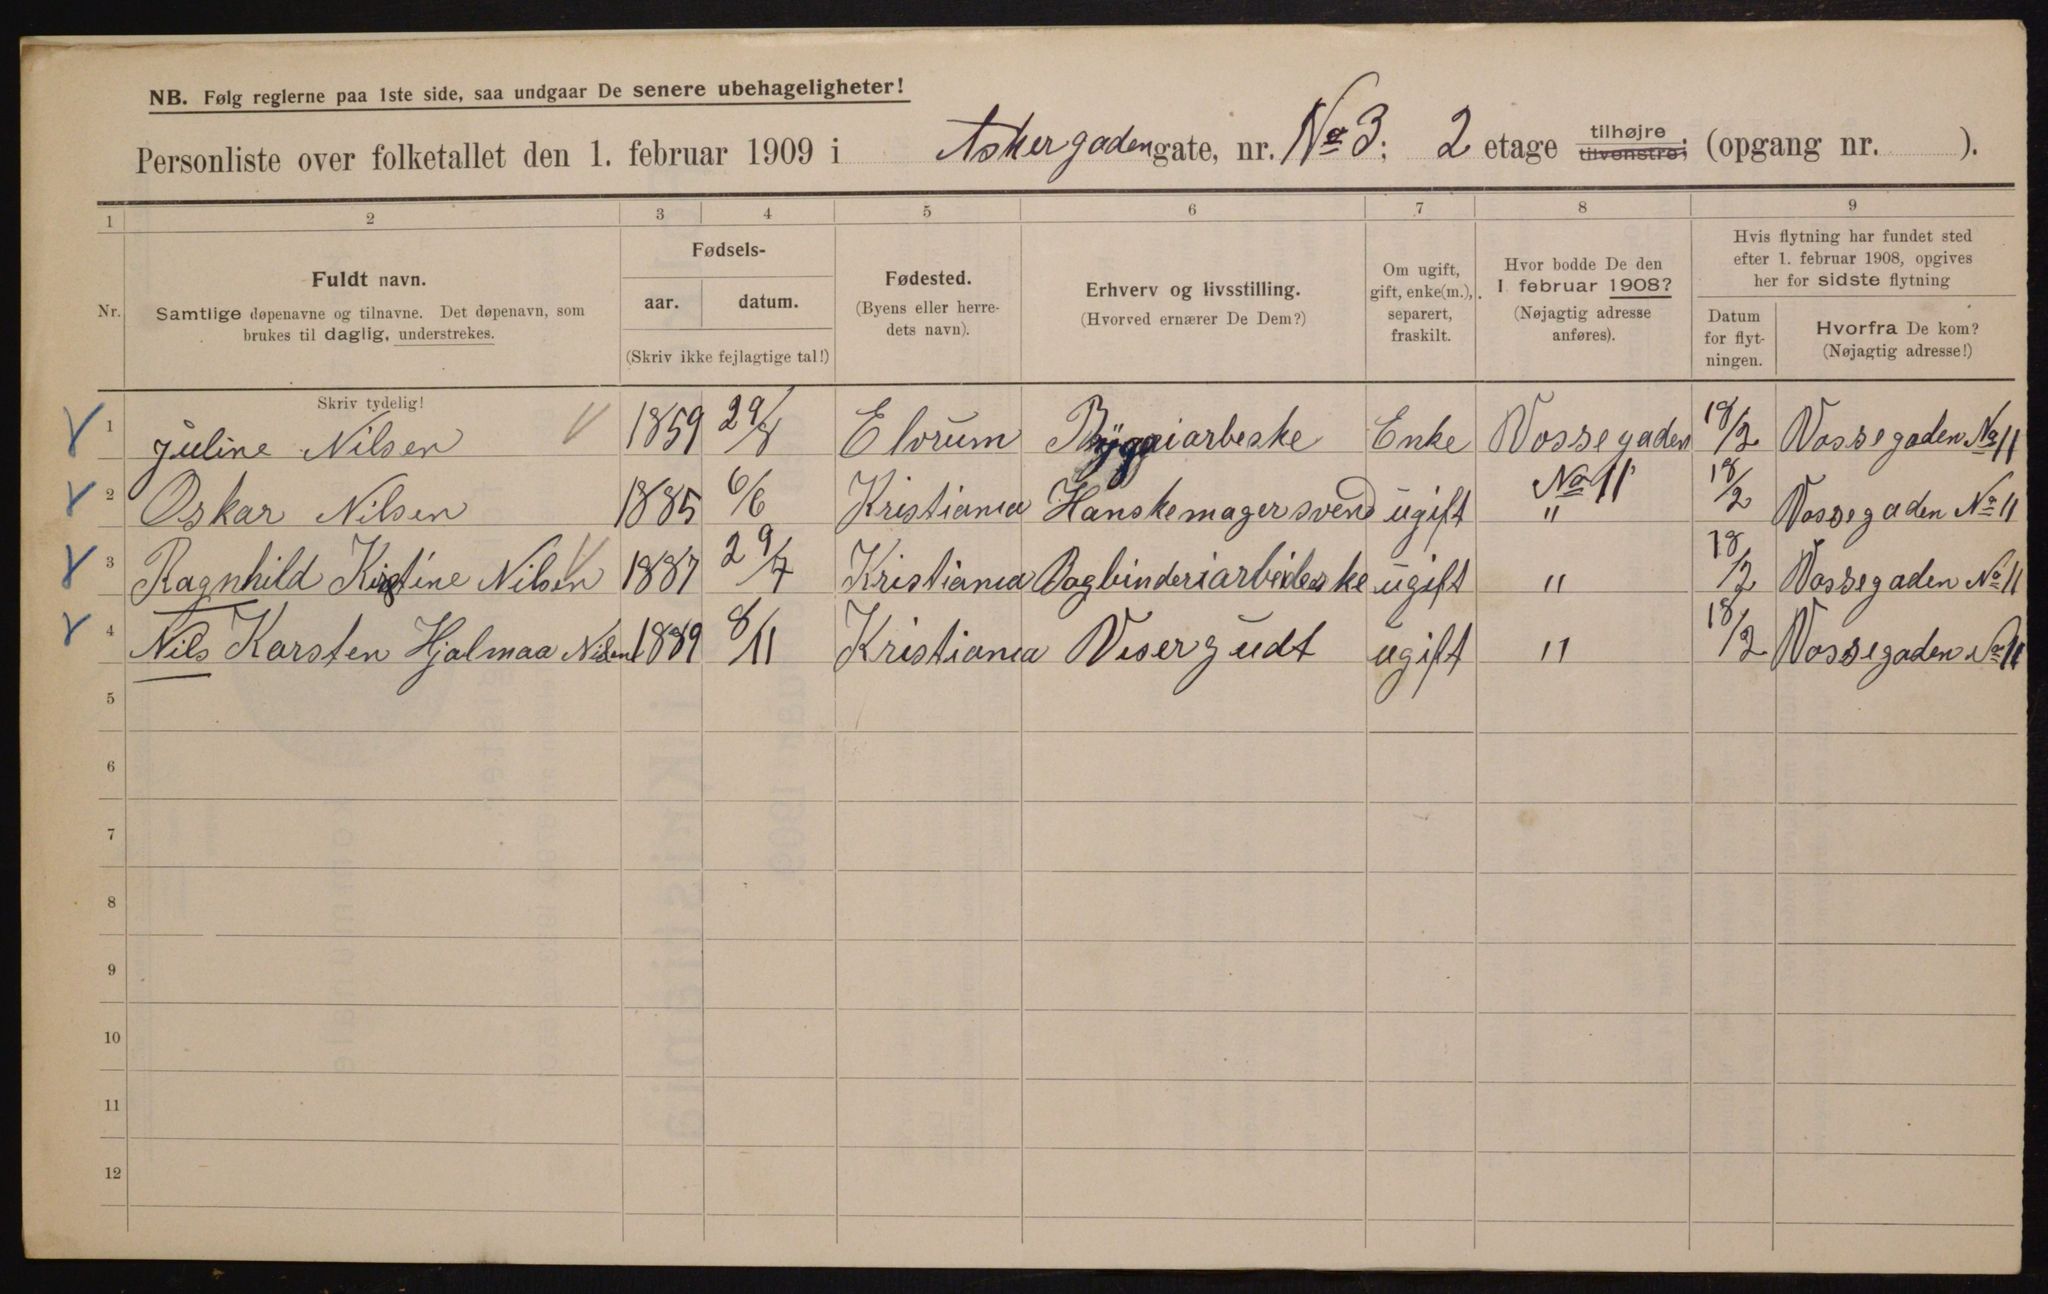 NB. Følg reglerne paa 1ste side, saa undgaar De senere ubehageligheter!
Personliste over folketallet den 1. februar 1909 i Askergadengate, nr. No 3; 2 etage tilhøjre tilvenstre; (opgang nr. ).
1 2 3 4 5 6 7 8 9
Nr.
Fuldt navn.
Samtlige døpenavne og tilnavne. Det døpenavn, som
brukes til daglig, understrekes.
Fødsels-
aar. datum.
(Skriv ikke fejlagtige tal!)
Fødested.
(Byens eller herre-
dets navn).
Erhverv og livsstilling.
(Hvorved ernærer De Dem?)
Om ugift,
gift, enke(m.),
separert,
fraskilt.
Hvor bodde De den
1. februar 1908?
(Nøjagtig adresse
anføres).
Hvis flytning har fundet sted
efter 1. februar 1908, opgives
her for sidste flytning
Datum
for flyt-
ningen.
Hvorfra De kom?
(Nøjagtig adresse!)
Skriv tydelig!
1 Juline Nilsen 1859 29/8 Elvrum Enke Vossegaden No 11 18/2 Vossegaden No 11
2 Oskar Nilsen 1885 6/6 Kristiania Hanskemagersvend ugift " 18/2 Vossegaden No 11
3 Ragnhild Kristine Nilsen 1887 29/7 Kristiania Bogbinderiarbeideske ugift " 18/2 Vossegaden No 11
4 Nils Karsten Hjalmaa Nilsen 1889 8/11 Kristiania Visergudt ugift " 18/2 Vossegaden No 11
5
6
7
8
9
10
11
12